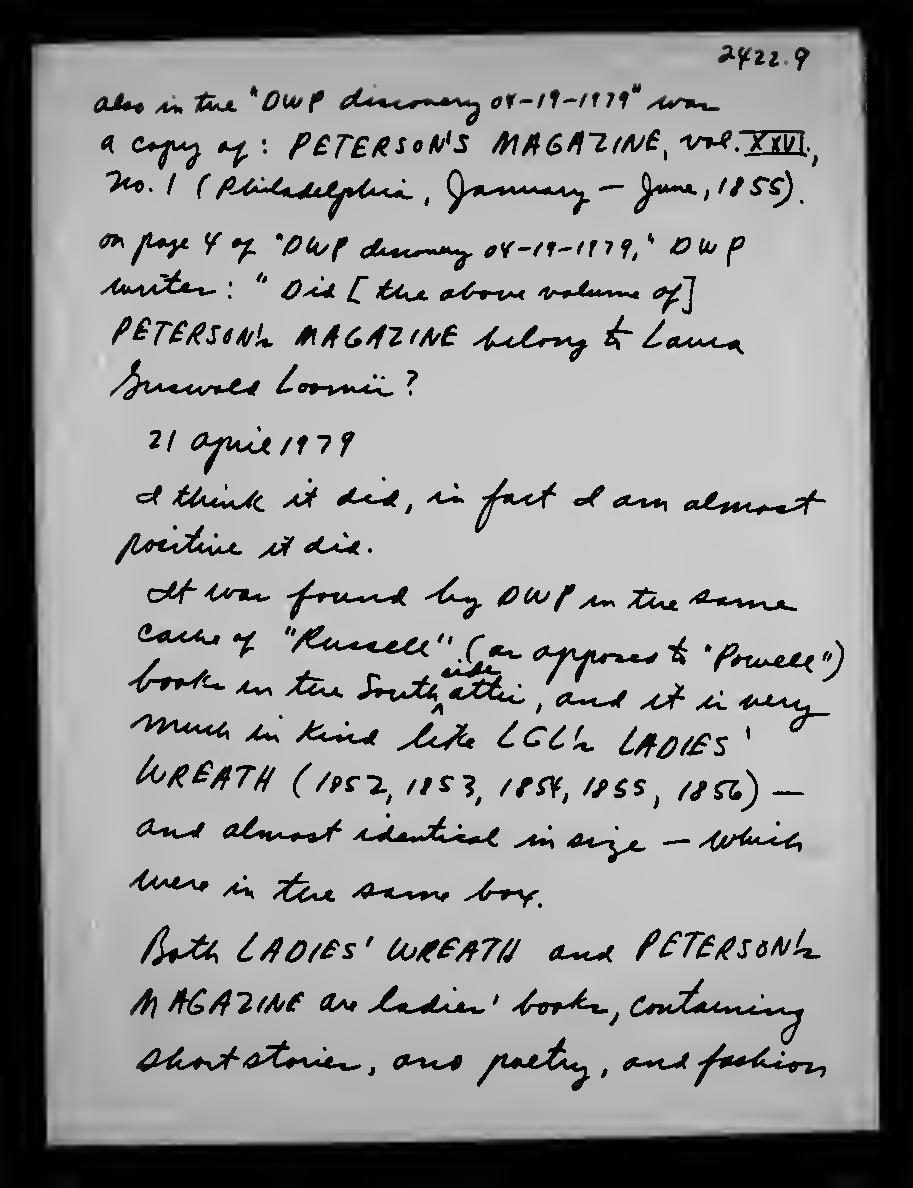 2422.9
also in the "DWP discovery 04-19-1979" was
a copy of: PETERSON'S MAGAZINE, vol. XXVI.,
No. 1 (Philadelphia, January — June, 1855).
on page 4 of "DWP discovery 04-19-1979," DWP
writes: "Did [the above volume of]
PETERSON'S MAGAZINE belong to Laura
Griswold Loomis?
21 April 1979
I think it did, in fact I am almost
positive it did.
It was found by DWP in the same
cache of "Russell" (as opposed to "Powell")
side
books in the South ^ attic, and it is very
much in kind like LGL's LADIES'
WREATH (1852, 1853, 1854, 1855, 1856) —
and almost identical in size — which
were in the same box.
Both LADIES' WREATH and PETERSON's
MAGAZINE are ladies' books, containing
short stories, and poetry, and fashion